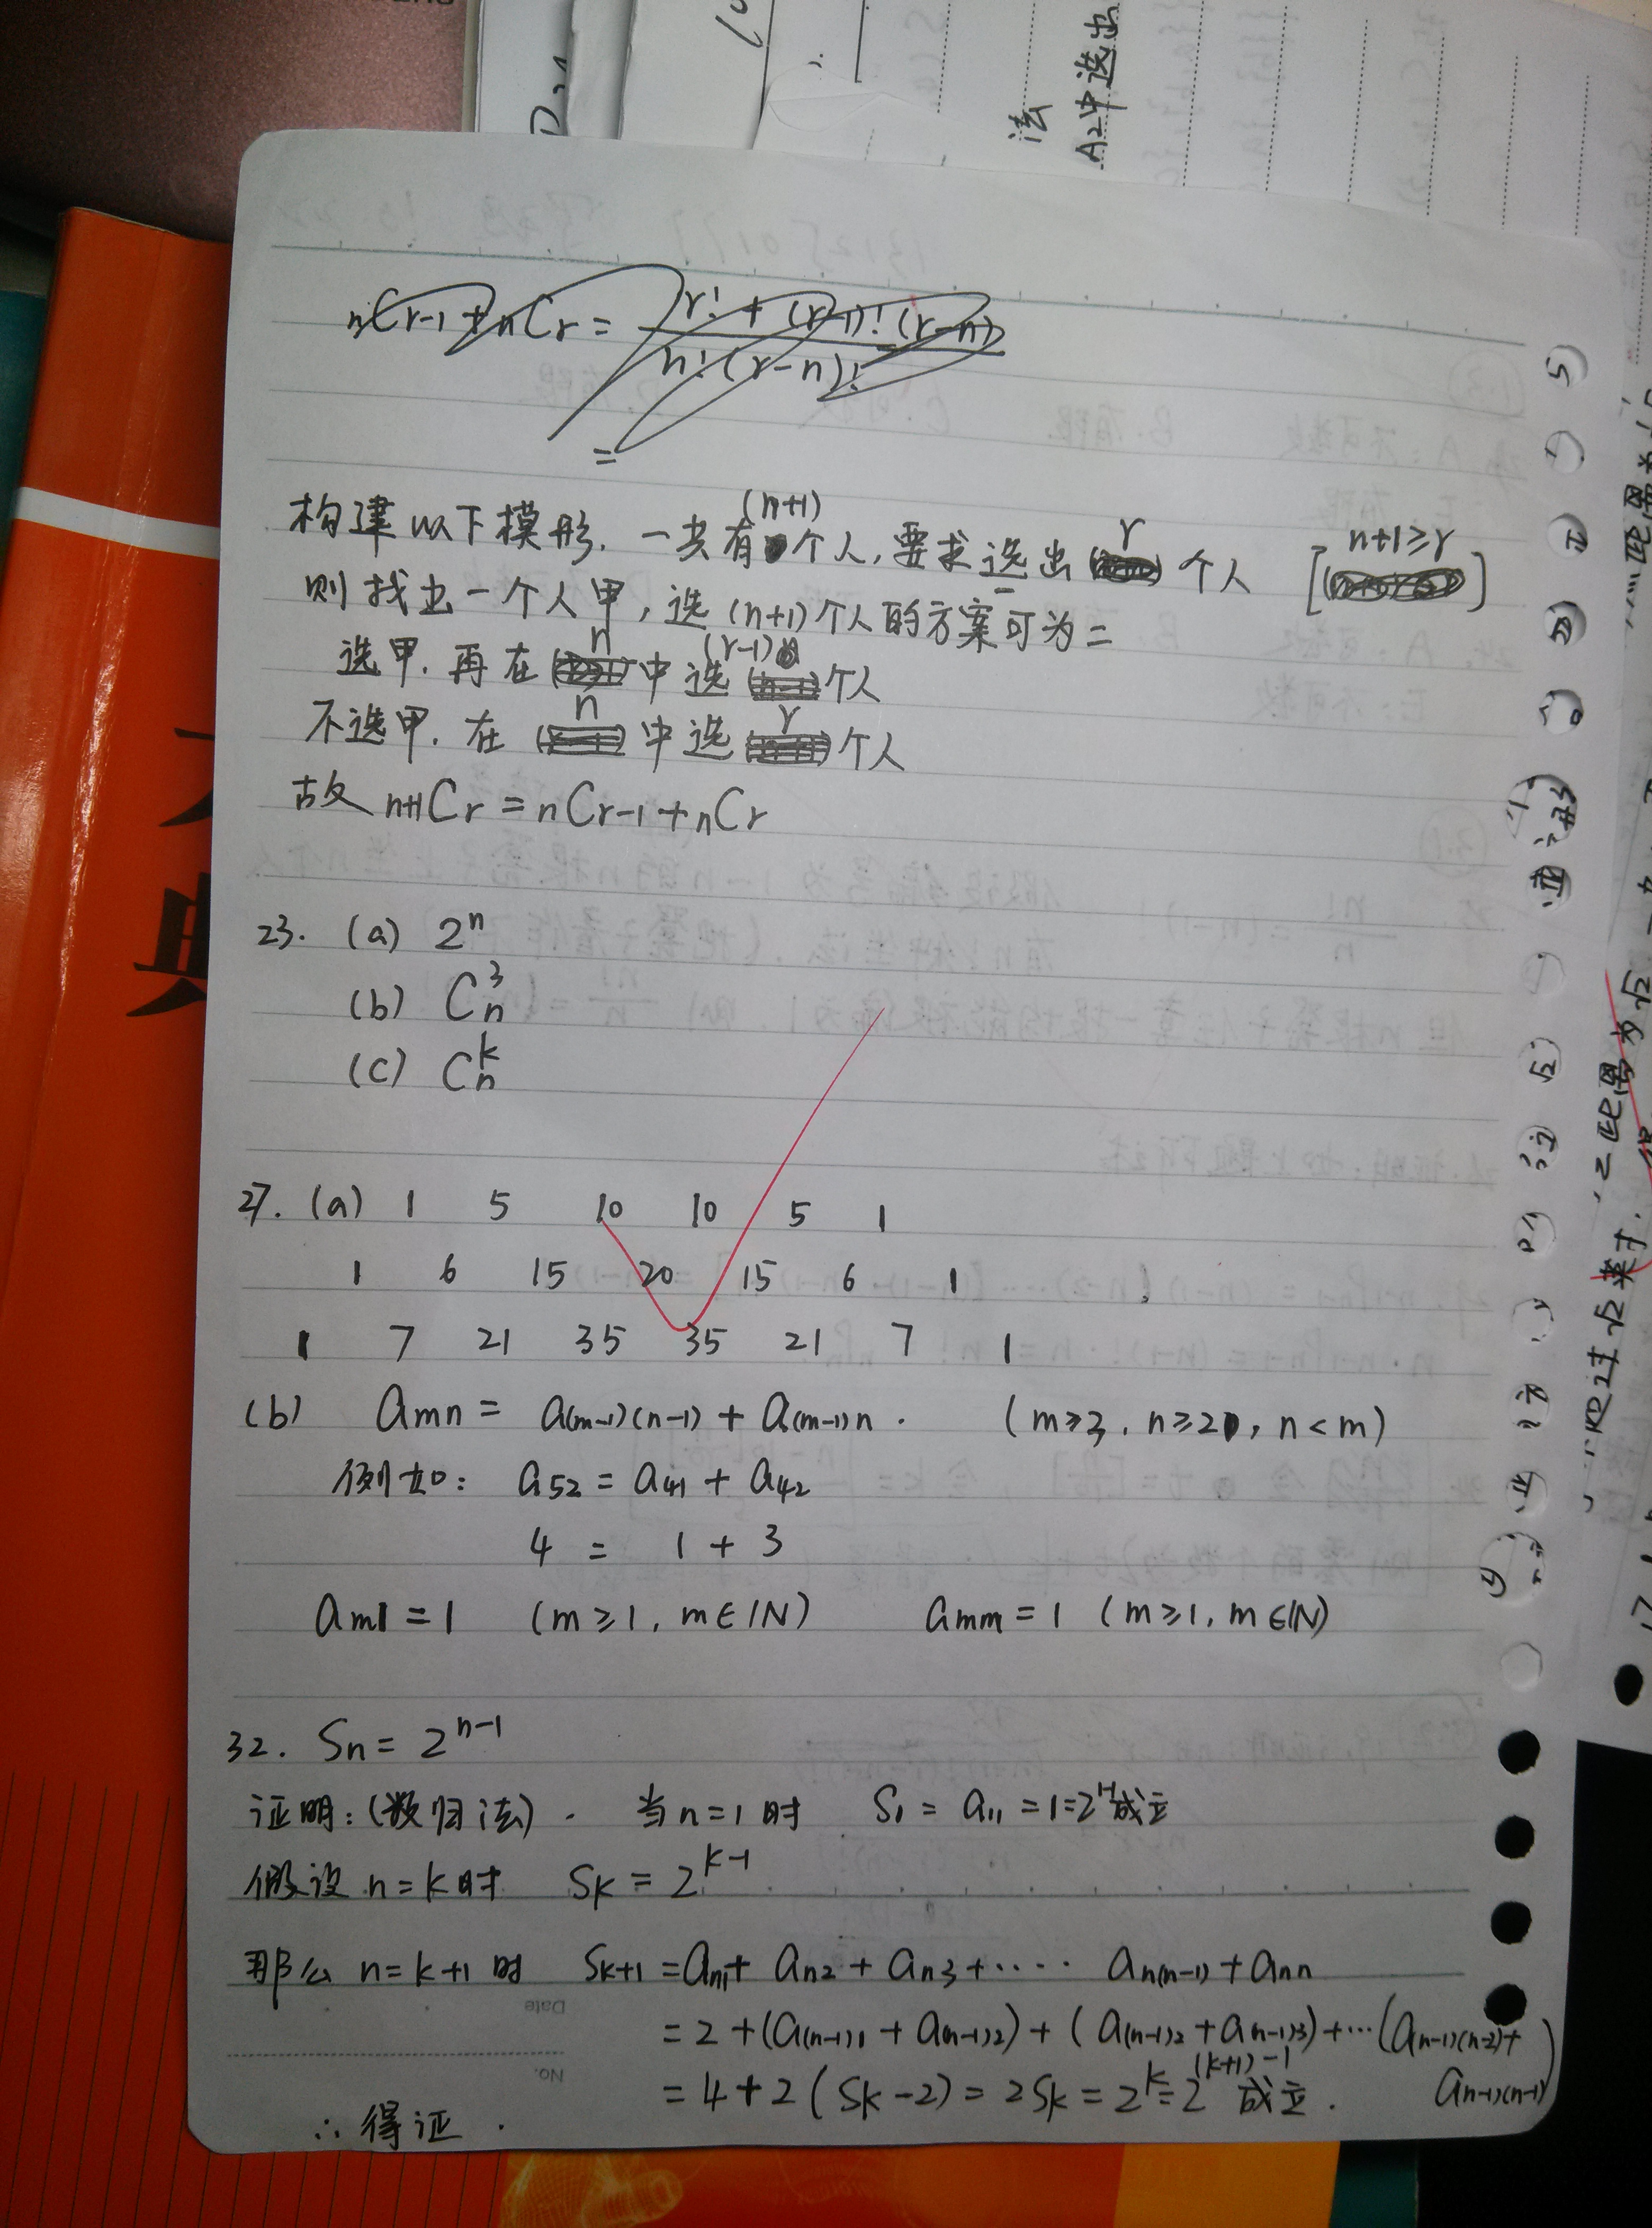 nCr-1 + nCr = (r! + (r-1)!(r-n)) / (n!(r-n)!)
=
构建以下模形. 一共有(n+1)个人, 要求选出 r 个人 [n+1≥r]
则找出一个人甲, 选(n+1)个人的方案可为二
选甲. 再在 n 中选 (r-1) 个人
不选甲. 在 n 中选 r 个人
故 n+1Cr = nCr-1 + nCr
23. (a) 2^n
(b) C_n^3
(c) C_n^k
27. (a) 1 5 10 10 5 1
1 6 15 20 15 6 1
1 7 21 35 35 21 7 1
(b) amn = a(m-1)(n-1) + a(m-1)n . (m≥3, n≥2, n<m)
例如: a52 = a41 + a42
4 = 1 + 3
am1 = 1 (m≥1, m∈IN) amm = 1 (m≥1, m∈IN)
32. Sn = 2^(n-1)
证明: (数归法). 当n=1时 S1 = a11 = 1 = 2^(1-1)成立
假设 n=k时 Sk = 2^(k-1)
那么 n=k+1 时 Sk+1 = an1 + an2 + an3 + ····· an(n-1) + ann
= 2 + (a(n-1)1 + a(n-1)2) + (a(n-1)2 + a(n-1)3) + ··· (a(n-1)(n-2) + a(n-1)(n-1))
= 4 + 2(Sk-2) = 2Sk = 2^k = 2^((k+1)-1) 成立.
∴ 得证.
Date
No.
法
A2中选出
典